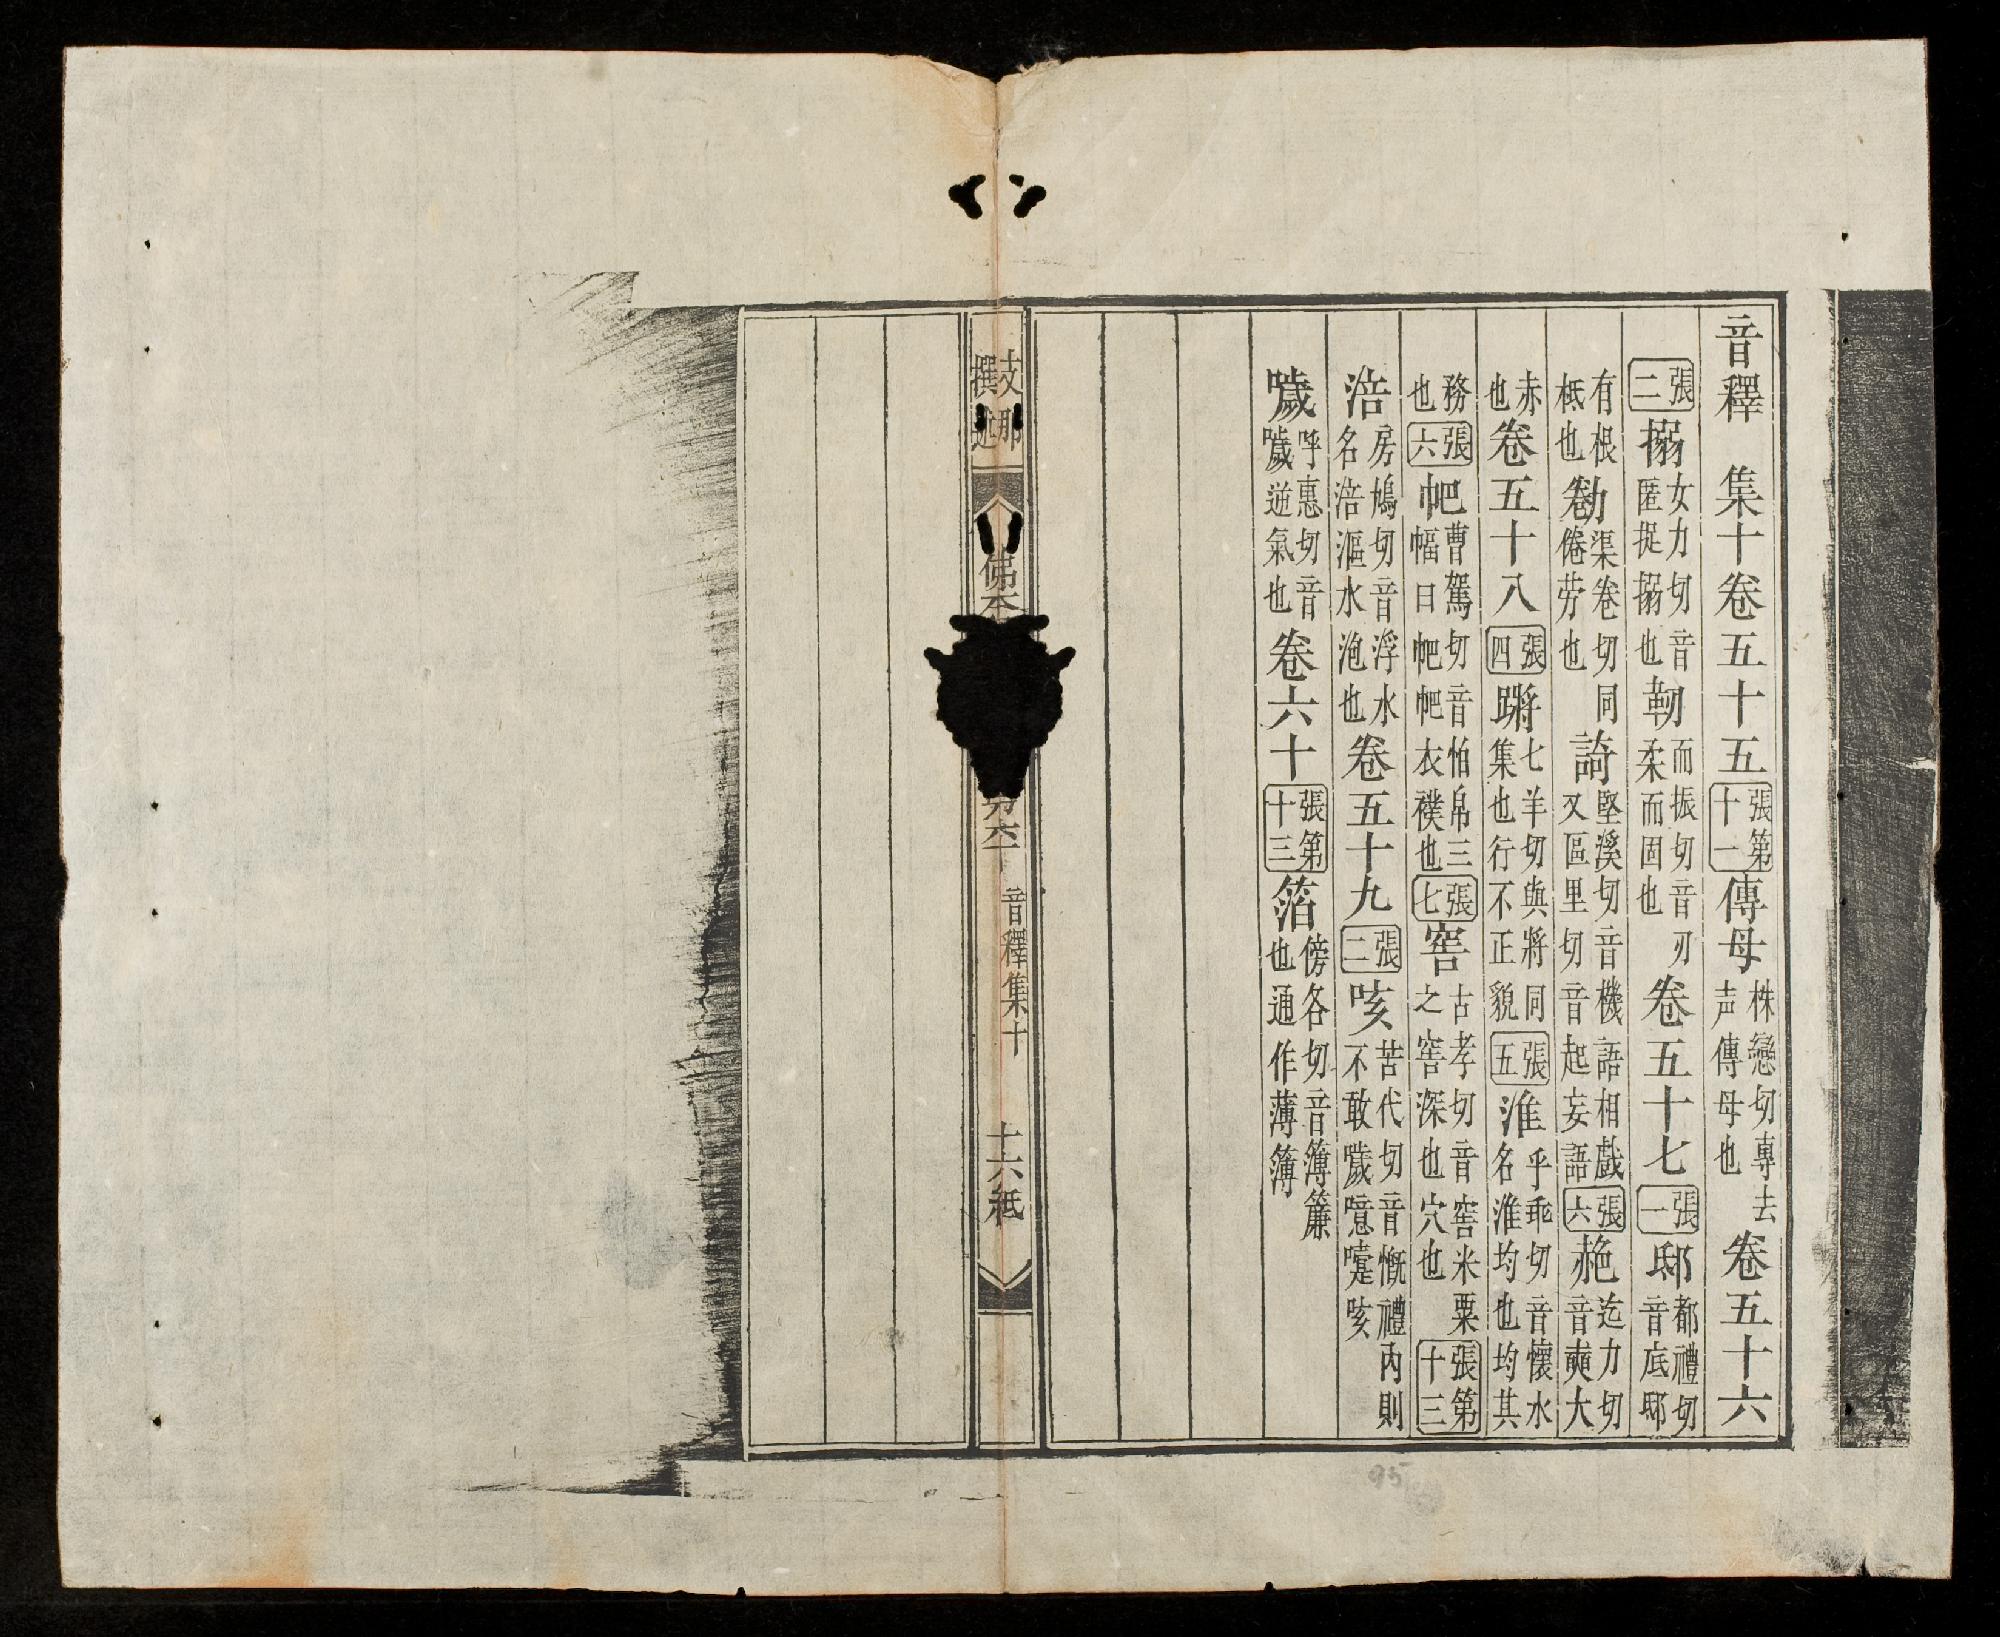 音釋　集十卷五十五張第十一傳母株戀切專去声傳母也卷五十六
張二搦女力切音匿捉搦也韌而振切音刃柔而固也卷五十七張一邸都禮切音底邸
有根柢也勌渠卷切同倦劳也堅溪切音機語相戲又區里切音起妄語張六赩迄力切音奭大
赤也卷五十八張四蹡七羊切與將同集也行不正貌張五淮乎乖切音懷水名淮均也均其
務也張六帊曹駕切音怕帛三幅曰帊帊衣襆也張七窖古孝切音窖米粟之窖深也穴也張第十三
涪房鳩切音浮水名涪漚水泡也卷五十九張二咳苦代切音慨禮内則不敢噦噫嚏咳
噦呼惠切音噦逆氣也卷六十張第十三箔傍各切音簿簾也通作薄簿
支那撰述
音釋集十　十六紙
95